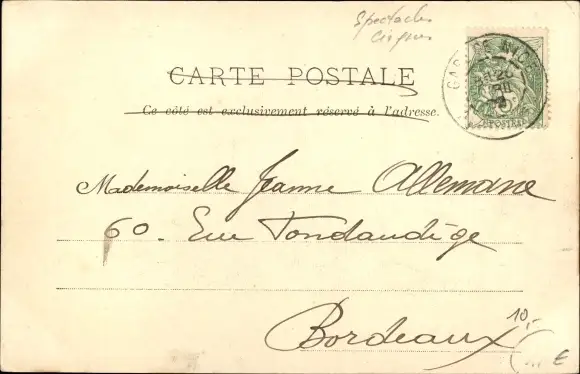 Spectacles
Cirques
CARTE POSTALE
Ce côté est exclusivement réservé à l'adresse.
GARE DE NICE
Mademoiselle Jeanne Allemane
60 - Rue Fondaudège
Bordeaux
10,-
€